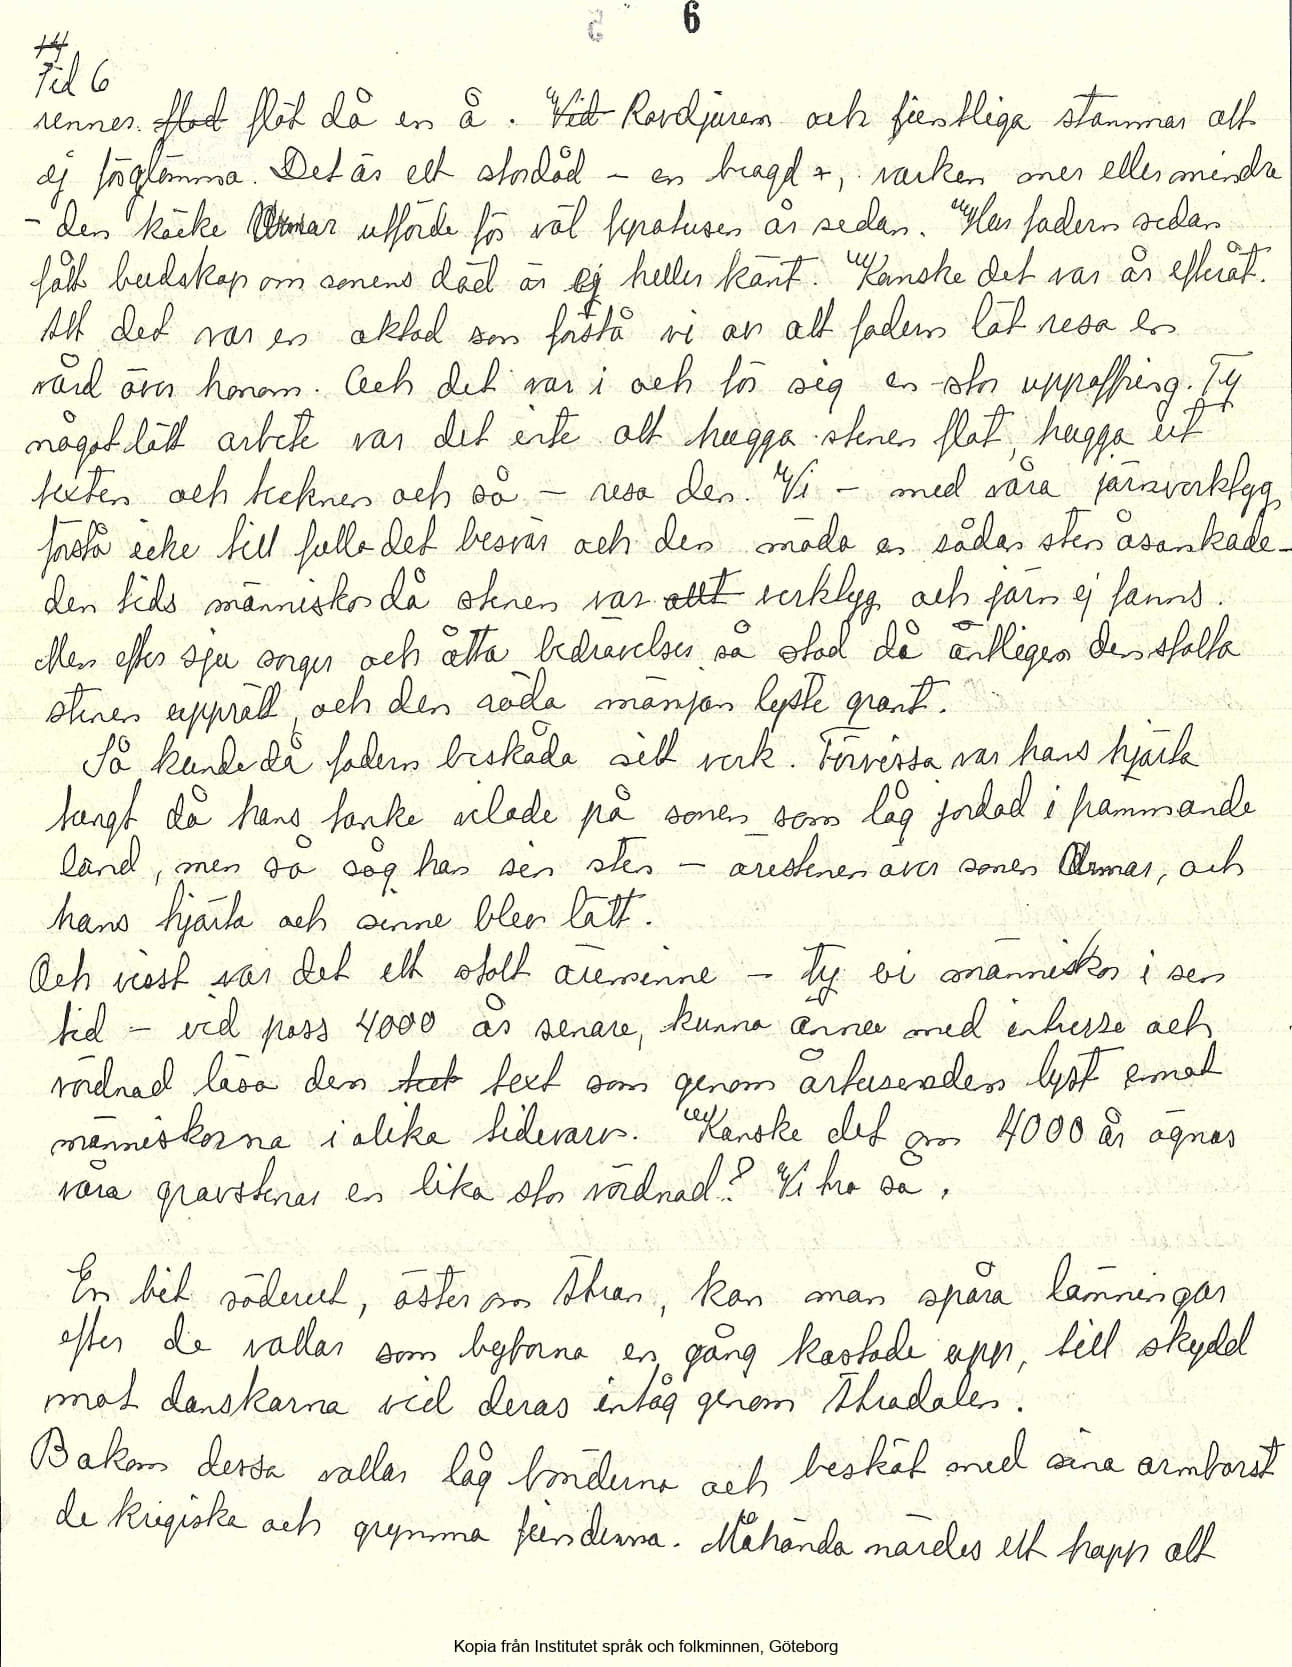 6
14
Tid 6
rennes. flod flöt då en å. Vid Rovdjuren och fientliga stammar att
ej förglömma. Det är ett stordåd - en bragd, varken mer eller mindre
- den käcke Ormar utförde för väl fyratusen år sedan. Har fadern sedan
fått budskap om sonens död är ej heller känt. Kanske det var år efteråt.
Att det var en aktad son förstå vi av att fadern lät resa en
vård över honom. Och det var i och för sig en stor uppoffring. Ty
något lätt arbete var det inte att hugga stenen flat, hugga ut
texten och tecknen och så - resa den. Vi - med våra järnverktyg
förstå icke till fullo det besvär och den möda en sådan sten åsamkade
den tids människor då stenen var allt verktyg och järn ej fanns.
Men efter sju sorger och åtta bedrövelser så stod då äntligen den stolta
stenen upprätt, och den röda mönjan lyste grant.
Så kunde då fadern beskåda sitt verk. Förvisso var hans hjärta
tungt då hans tanke vilade på sonen som låg jordad i främmande
land, men så såg han sin sten - ärestenen över sonen Ormar, och
hans hjärta och sinne blev lätt.
Och visst var det ett stolt äreminne - ty vi människor i sen
tid - vid pass 4000 år senare, kunna ännu med intresse och
vördnad läsa den text som genom årtusenden lyst emot
människorna i olika tidevarv. Kanske det om 4000 år ägnas
våra gravstenar en lika stor vördnad? Vi tro så.
En bit söderut, öster om Ätran, kan man spåra lämningar
efter de vallar som byborna en gång kastade upp, till skydd
mot danskarna vid deras intåg genom Ätradalen.
Bakom dessa vallar låg bönderna och besköt med sina armborst
de krigiska och grymma fienderna. Måhända närdes ett hopp att
Kopia från Institutet språk och folkminnen, Göteborg